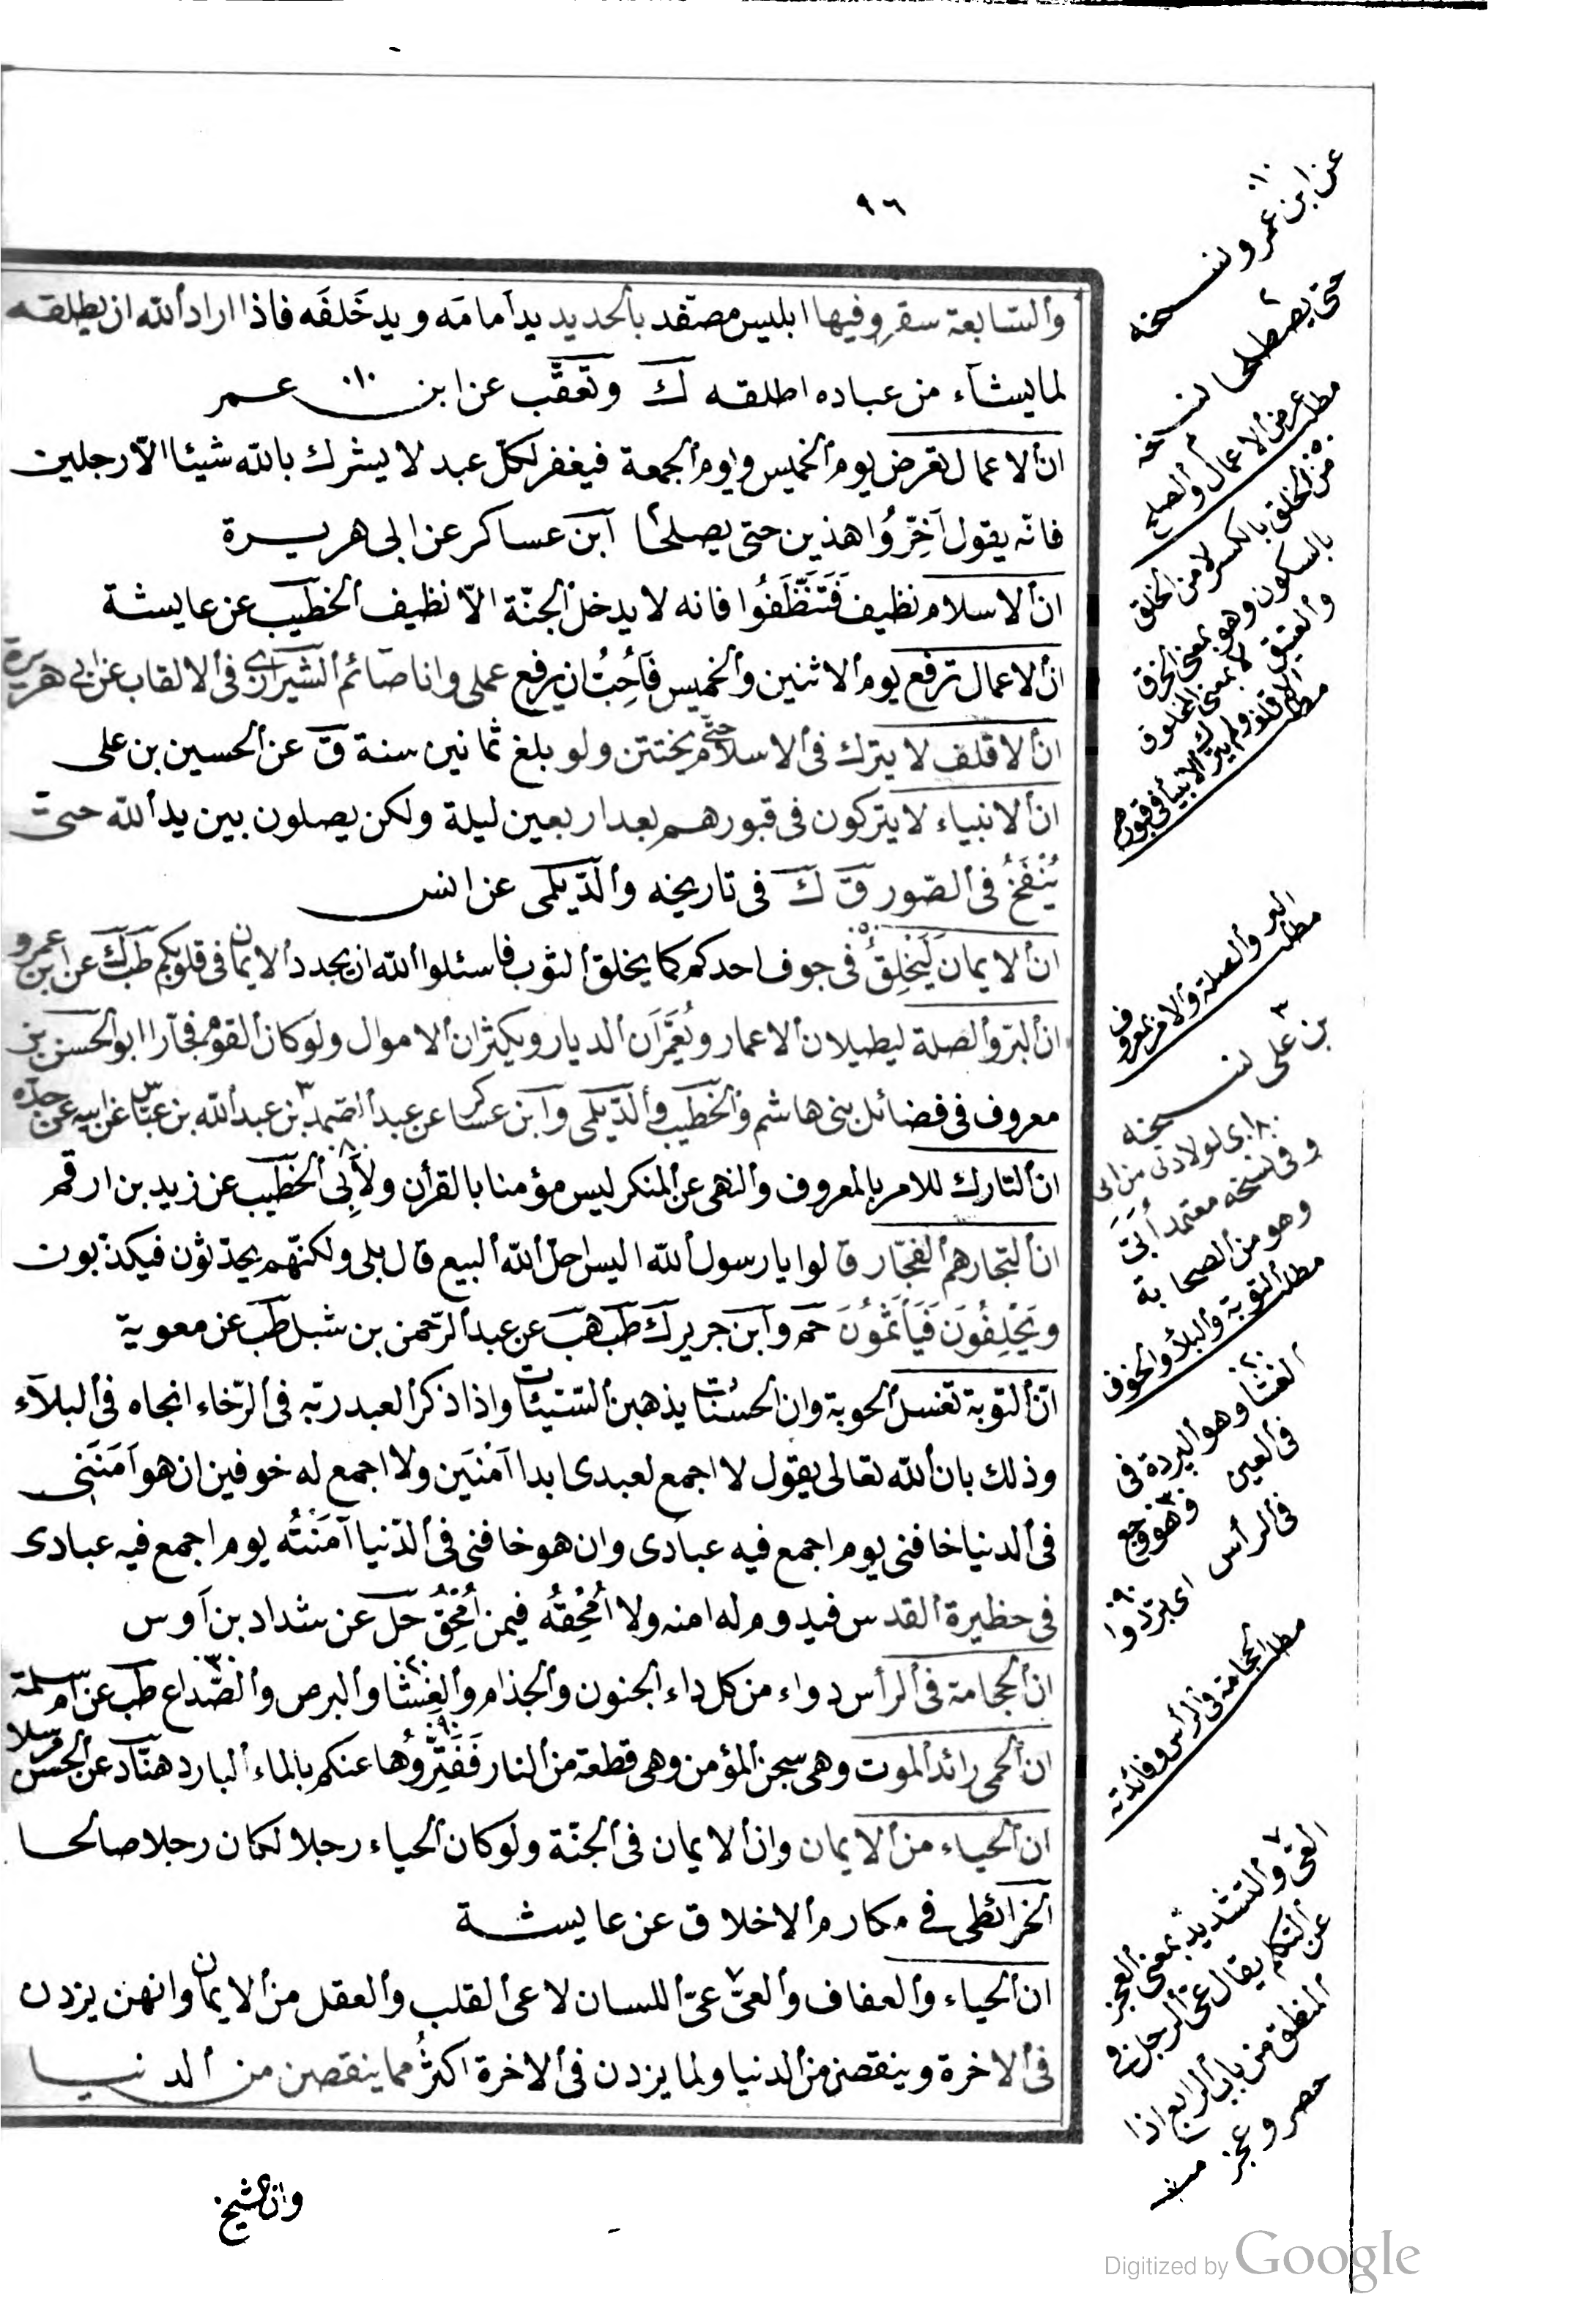 ٩٦
والسّابعة سقر وفيها ابليس مصفد بالحديد يد أمامه ويد خَلفَه فاذا اراد الله ان يطلقه
لما يشآء من عباده اطلقه ك وتعقّب عن ابن عمر
ان الاعمال تعرض يوم الخميس ويوم الجمعة فيغفر لكلّ عبد لا يشرك بالله شيئا الاّ رجلين
فانّه يقول اَخِّرُوا هذين حتى يصلحا ابن عساكر عن ابى هريرة
ان الاسلام نظيف فَتَنَظَّفُوا فانه لا يدخل الجنّة الاّ نظيف الخطيب عن عايشة
ان الاعمال ترفع يوم الاثنين والخميس فَاُحِبُّ ان يرفع عملى وانا صآئم الشيرازى فى الالقاب عن ابى هريرة
ان الاقلف لا يترك فى الاسلام حتّى يختتن ولو بلغ ثمانين سنة ق عن الحسين بن على
ان الانبياء لا يتركون فى قبورهم بعد اربعين ليلة ولكن يصلون بين يد الله حتىّ
يُنْفَخُ فى الصّور ق ك فى تاريخه والدّيلمى عن انس
ان الايمان لَيَخْلِقُ فى جوف احدكم كما يخلق الثوب فاسئلوا الله ان يجدد الايمان فى قلوبكم طب ك عن ابن عمرو
ان البرّ والصلة ليطيلان الاعمار ويُعَمِّرَان الديار ويكثران الاموال ولو كان القوم فجّارا ابو الحسن بن
معروف فى فضائل بنى هاشم والخطيب والدّيلمى وابن عساكر عن عبد الصمد بن عبد الله بن عبّاس عن ابيه عن جدّه
ان التارك للامر بالمعروف والنهى عن المنكر ليس مؤمنا بالقرأن ولاَ بِى الخطيب عن زيد بن ارقم
ان التجار هم الفجّار قالوا يا رسول الله اليس احلّ الله البيع قال بلى ولكنّهم يحدّثون فيكذّبون
ويَحْلِفُونَ فَيَأْثَمُونَ حم وابن جرير ك طب هب عن عبد الرّحمن بن شبل طب عن معوية
انّ التوبة تغسل الحوبة وان الحسنات يذهبن السّيئات واذا ذكر العبد ربّه فى الرّخاء انجاه فى البلآء
وذلك بان الله تعالى يقول لا اجمع لعبدى ابدا اَمْنَيَن ولا اجمع له خوفين ان هو اَمَنَنِى
فى الدنيا خافنى يوم اجمع فيه عبادى وان هو خافنى فى الدّنيا آمَنْتُه يوم اجمع فيه عبادى
فى حظيرة القدس فيدوم له امنه ولا اُمْحِقُه فيمن اُمْحِقُ حل عن شداد بن اَوس
ان الحجامة فى الرأس دواء من كل داء الجنون والجذام والعِشَا والبرص والصُّداع طب عن ام سلمة
ان الحمى رائد الموت وهى سجن المؤمن وهى قطعة من النار فَفَتِّرُوُها عنكم بالماء البارد هنّاد عن الحسن مرسلا
ان الحياء من الايمان وان الايمان فى الجنّة ولو كان الحياء رجلا لكان رجلا صالحا
الخرائطى فى مكارم الاخلاق عن عايشة
ان الحياء والعفاف والعىّ عىّ اللسان لا عى القلب والعقل من الايمان وانهن يزدن
فى الاخرة وينقصن من الدنيا ولما يزدن فى الاخرة اكثرُ مما ينقصن من الدنيا
وان الشيخ
عن ابن عمرو نسخه
حتى يصطلحا نسخه
مطلب عرض الاعمال والصلح
من الخلق بالكسر لا من الخلق
بالسكون وهو بمعنى الخرق
والعتيق لا بمعنى المخلوق
مطلب
مطلب البر والصلة والامر بمعروف
بن على نسخه
اى لولادتى من ابى
وفى نسخه معتمد أُبَىّ
وهو من الصحابة
مطلب التوبة والبلاء والخوف
العشا وهو البردة فى
فى العين
وهو وجع
فى الرأس
اى برّدوا
مطلب الحجامة فى الرأس وفائدته
العىّ والتشديد بمعنى العجز
عن التكلم يقال عىّ الرجل فى
المنطق من باب الرابع اذا
حصر وعجز
Digitized by Google